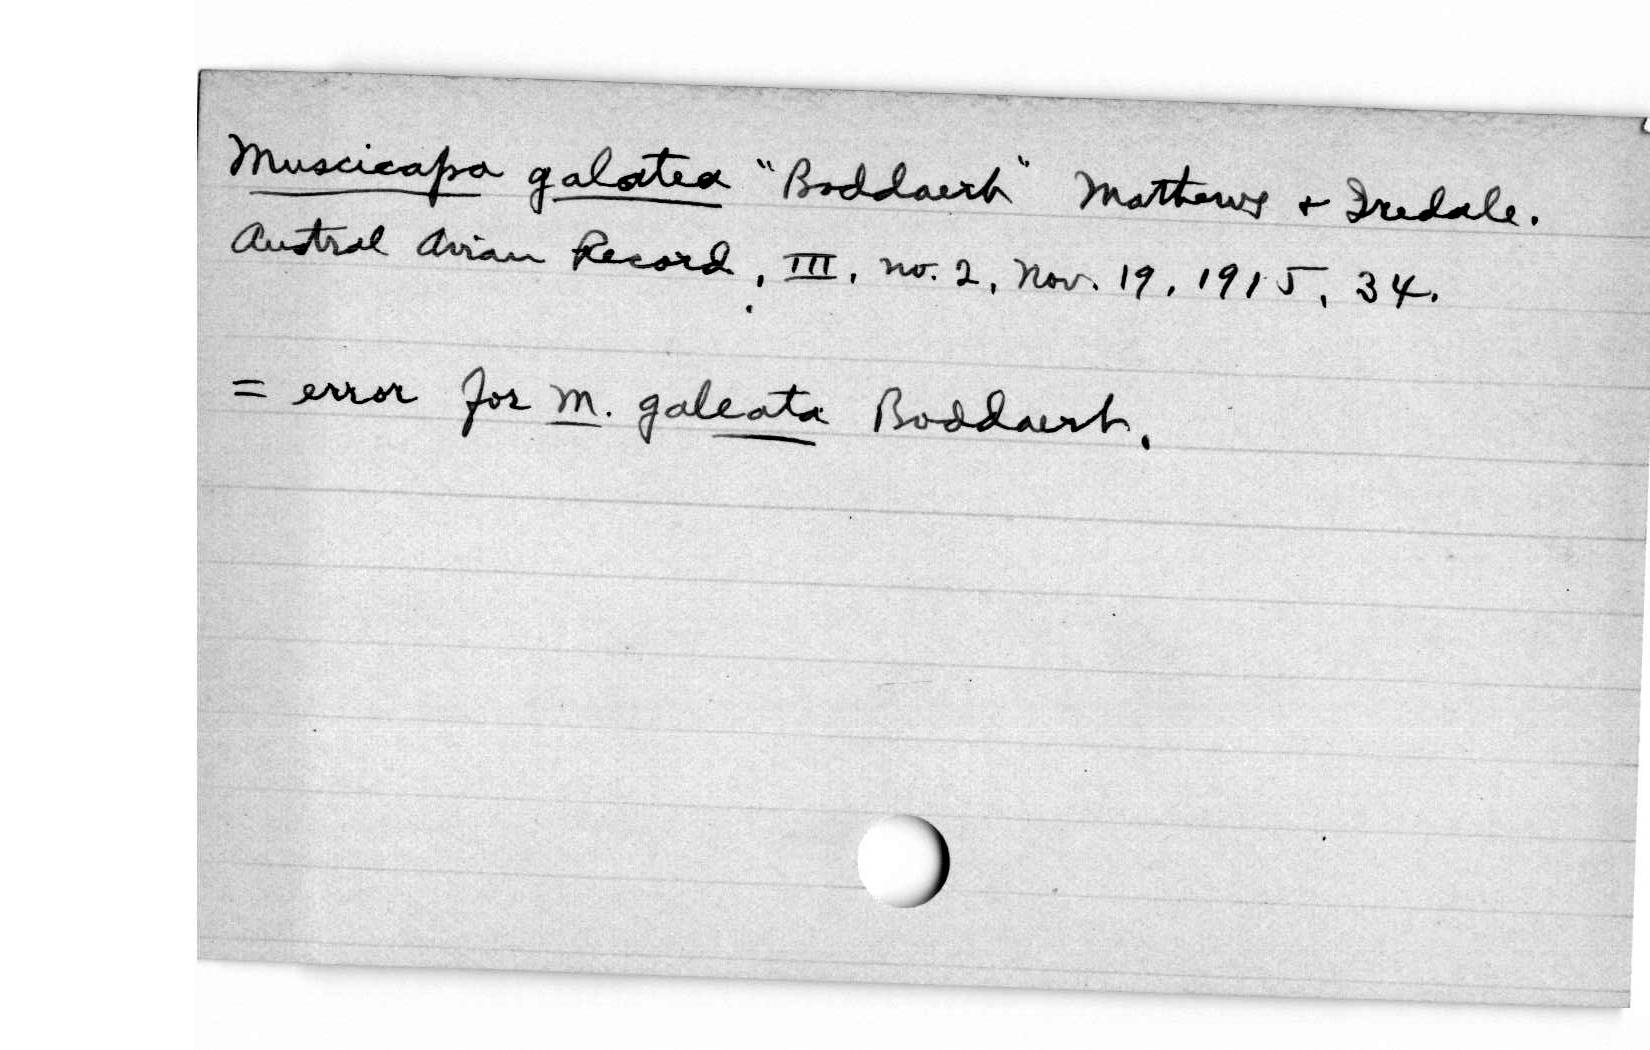 Muscicapa galatea "Boddaert" Mathews & Iredale.
Austral Avian Record, III, no. 2, Nov. 19, 1915, 34.
= error for M. galeata Boddaert.